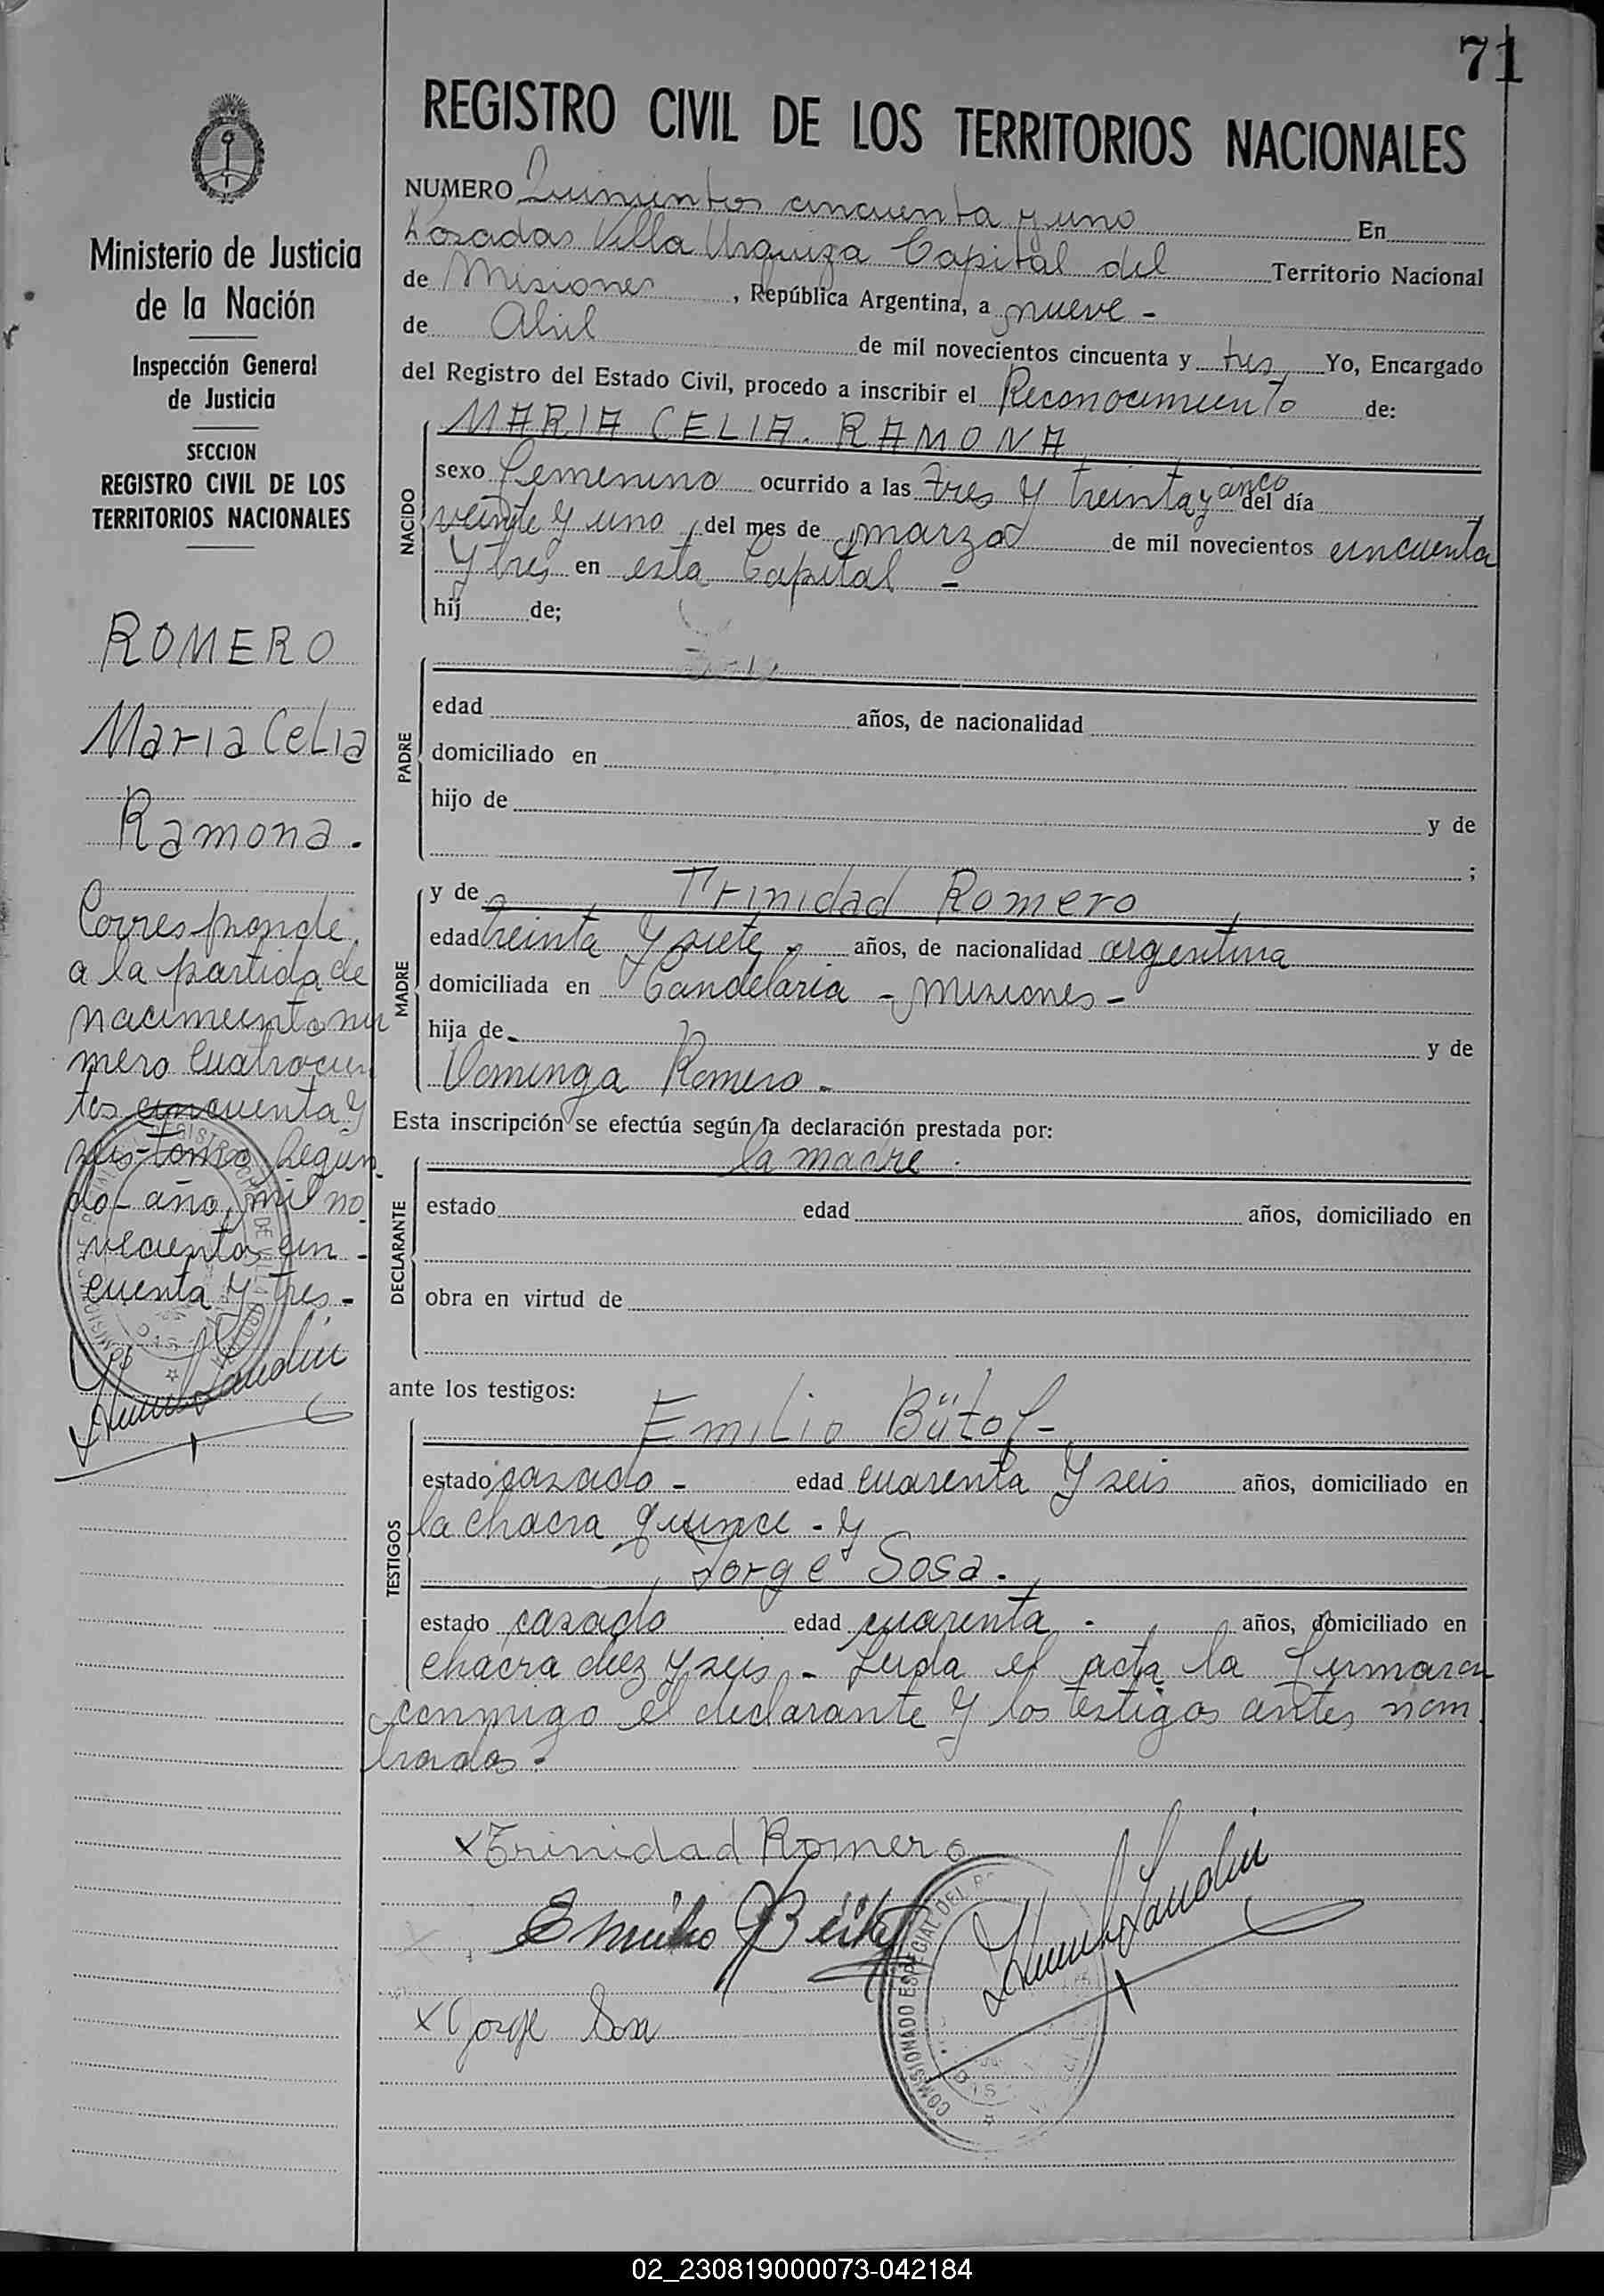 71
REGISTRO CIVIL DE LOS TERRITORIOS NACIONALES
Ministerio de Justicia
de la Nación
Inspección General
de Justicia
SECCION
REGISTRO CIVIL DE LOS
TERRITORIOS NACIONALES
ROMERO
Maria Celia
Ramona.
Corresponde
a la partida de
nacimiento nu
mero cuatrocien
tos cincuenta y
seis - tomo segun
do - año mil no
vecientos cin -
cuenta y tres -
NUMERO Quinientos cincuenta y uno En
Posadas Villa Urquiza Capital del Territorio Nacional
de Misiones, República Argentina, a nueve -
de Abril de mil novecientos cincuenta y tres Yo, Encargado
del Registro del Estado Civil, procedo a inscribir el Reconocimiento de:
NACIDO
MARIA CELIA RAMONA
sexo femenino ocurrido a las tres y treinta y cinco del día
veinte y uno del mes de marzo de mil novecientos cincuenta
y tres en esta Capital -
hij de;
PADRE
edad años, de nacionalidad
domiciliado en
hijo de y de
;
MADRE
y de Trinidad Romero
edad treinta y siete - años, de nacionalidad argentina
domiciliada en Candelaria - misiones -
hija de - y de
Dominga Romero -
Esta inscripción se efectúa según la declaración prestada por:
DECLARANTE
la madre.
estado edad años, domiciliado en
obra en virtud de
ante los testigos:
TESTIGOS
Emilio Bütof -
estado casado - edad cuarenta y seis años, domiciliado en
la chacra quince - y
Jorge Sosa.
estado casado edad cuarenta - años, domiciliado en
chacra diez y seis - Leída el acta la firmaron
conmigo el declarante y los testigos antes nom
brados -
x Trinidad Romero
Emilio Bütof
x Jorge Sosa
COMISIONADO ESPECIAL DEL
02_230819000073-042184